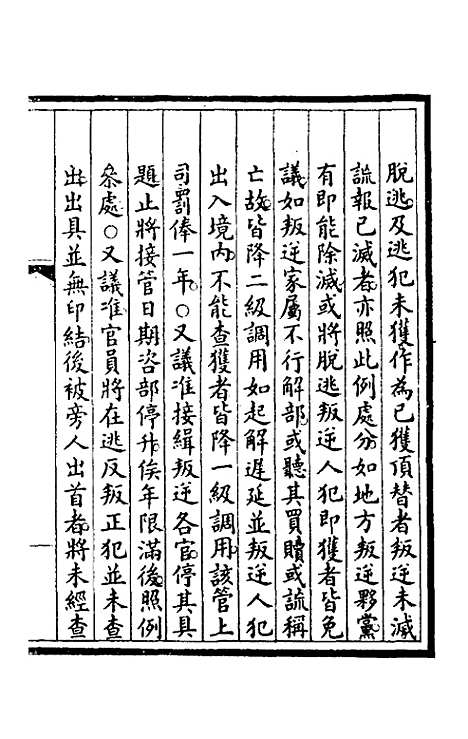 脫逃及逃犯未獲作為已獲頂替者叛逆未滅
謊報已滅者亦照此例處分如地方叛逆夥黨
有即能除滅或將脫逃叛逆人犯即獲者皆免
議如叛逆家屬不行解部或聽其買贖或謊稱
亡故皆降二級調用如起解遲延並叛逆人犯
出入境內不能查獲者皆降一級調用該管上
司罰俸一年○又議准接緝叛逆各官停其具
題止將接管日期咨部停升俟年限滿後照例
叅處○又議准官員將在逃反叛正犯並未查
出出具並無印結後被旁人出首者將未經查